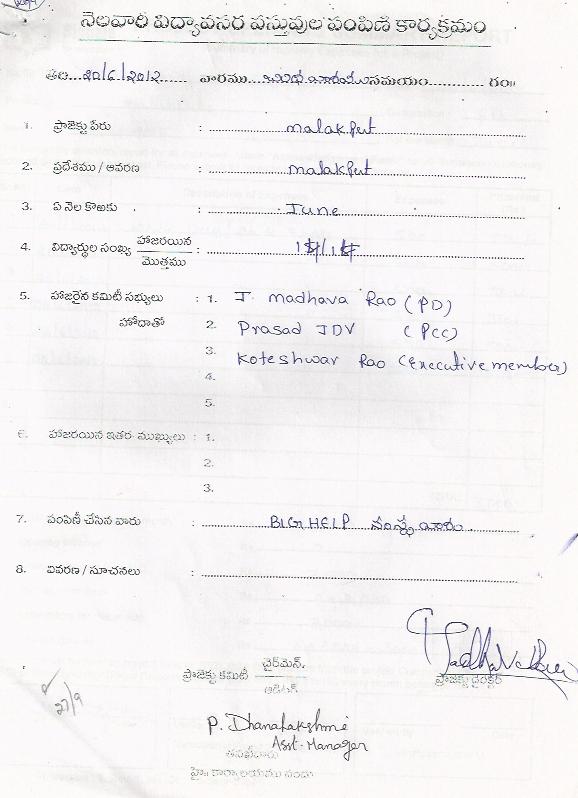 నెలవారీ విద్యావసర వస్తువుల పంపిణీ కార్యక్రమం
తేది...20/6/2012...... వారము...బుధవారము..సమయం............గం॥
1. ప్రాజెక్టు పేరు : malakpet
2. ప్రదేశము / ఆవరణ : malakpet
3. ఏ నెల కొఱకు : June
4. విద్యార్థుల సంఖ్య హాజరయిన / మొత్తము :
5. హాజరైన కమిటీ సభ్యులు : 1. J. madhava Rao (PD)
హోదాతో 2. Prasad JDV (PCC)
3. Koteshwar Rao (Executive member)
4.
5.
6. హాజరయిన ఇతర ముఖ్యులు : 1.
2.
3.
7. పంపిణీ చేసిన వారు : BIG HELP సంస్థ వారు.
8. వివరణ / సూచనలు :
ప్రాజెక్టు కమిటీ చైర్‌మెన్. / ఆడిటర్ ప్రాజెక్టు డైరెక్టర్
27/9
P. Dhanalakshmi
Asst. Manager
తనిఖీదారు
హైః కార్యాలయము నందు